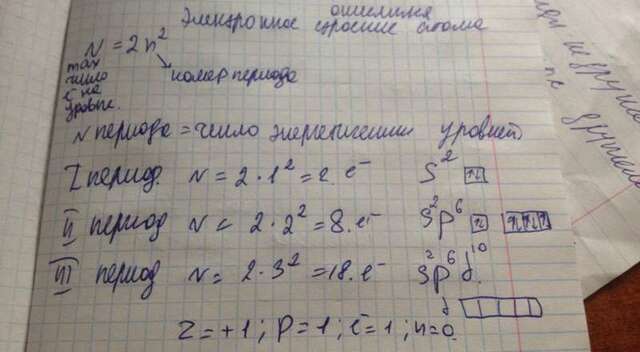 Электронное строение атома
N = 2n²
max число e⁻ на уровне.
номер периода
N периода = число энергетических уровней
I период. N = 2·1² = 2.e⁻ S² ↑↓
II период N = 2·2² = 8.e⁻ S²p⁶ ↑↓ ↑↓ ↑↓ ↑↓
III период N = 2·3² = 18.e⁻ S²p⁶d¹⁰.
d
Z = +1; P = 1; e⁻ = 1; n = 0.